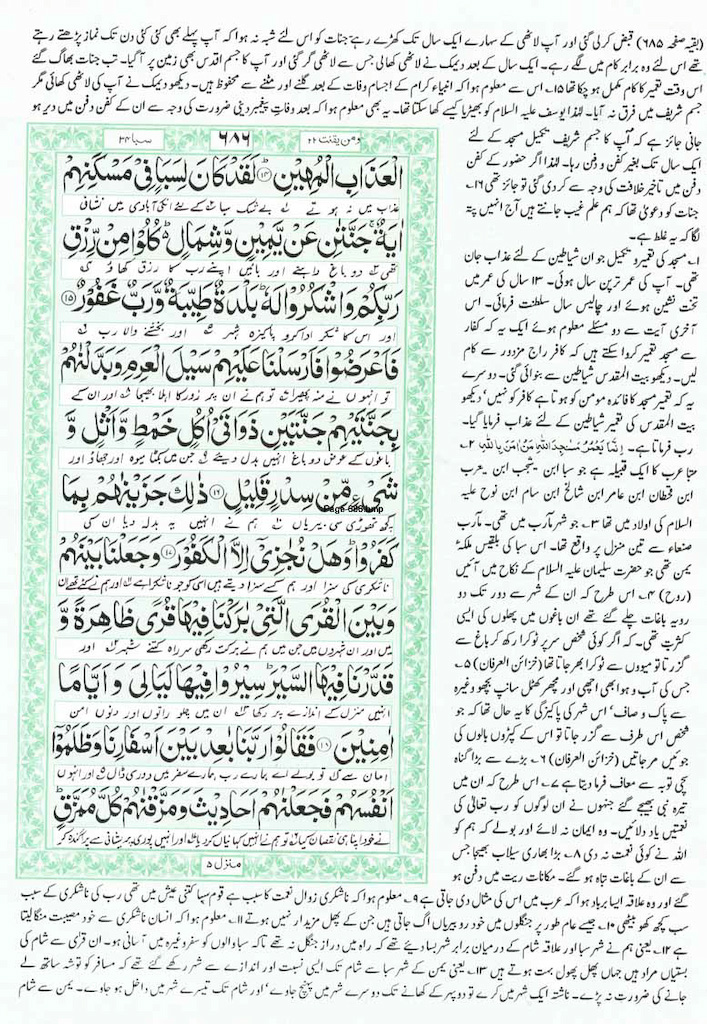 (بقیہ صفحہ ۶۸۵) قبض کرلی گئی اور آپ لاٹھی کے سہارے ایک سال تک کھڑے رہے جنات کو اس لئے شبہ نہ ہوا کہ آپ پہلے بھی کئی کئی دن تک نماز پڑھتے رہتے
تھے اس لئے وہ برابر کام میں لگے رہے۔ ایک سال کے بعد دیمک نے لاٹھی کھالی جس سے لاٹھی گر گئی اور آپ کا جسم اقدس بھی زمین پر آگیا۔ تب جنات بھاگ گئے
اس وقت تعمیر کا کام مکمل ہو چکا تھا ۱۵؎ اس سے معلوم ہوا کہ انبیاء کرام کے اجسام وفات کے بعد گلنے اور مٹنے سے محفوظ ہیں۔ دیکھو دیمک نے آپ کی لاٹھی کھائی مگر
جسم شریف میں فرق نہ آیا۔ لہٰذا یوسف علیہ السلام کو بھیڑیا کیسے کھا سکتا تھا۔ یہ بھی معلوم ہوا کہ بعد وفات پیغمبر دینی ضرورت کی وجہ سے ان کے کفن دفن میں دیر ہو
جانی جائز ہے کہ آپ کا جسم شریف تکمیل مسجد کے لئے
ایک سال تک بغیر کفن و دفن رہا۔ لہٰذا اگر حضور کے کفن
دفن میں تاخیر خلافت کی وجہ سے کر دی گئی تو جائز تھی ۱۶؎
جنات کو دعویٰ تھا کہ ہم علم غیب جانتے ہیں آج انہیں پتہ
لگا کہ یہ غلط ہے۔
۱؎ مسجد کی تعمیر و تکمیل جو ان شیاطین کے لئے عذاب جان
تھی۔ آپ کی عمر ترپن سال ہوئی۔ ۱۳ سال کی عمر میں
تخت نشین ہوئے اور چالیس سال سلطنت فرمائی۔ اس
آخری آیت سے دو مسئلے معلوم ہوئے ایک یہ کہ کفار
سے مسجد تعمیر کروا سکتے ہیں کہ کافر راج مزدور سے کام
لیں۔ دیکھو بیت المقدس شیاطین سے بنوائی گئی۔ دوسرے
یہ کہ تعمیر مسجد کا فائدہ مومن کو ہوتا ہے کافر کو نہیں، دیکھو
بیت المقدس کی تعمیر شیاطین کے لئے عذاب فرمایا گیا۔
رب فرماتا ہے۔ اِنَّمَا یَعْمُرُ مَسٰجِدَ اللّٰہِ مَنْ اٰمَنَ بِاللّٰہِ ۲؎
سبا عرب کا ایک قبیلہ ہے جو سبا ابن یشجب ابن یعرب
ابن قحطان ابن عامر ابن شالخ ابن سام ابن نوح علیہ
السلام کی اولاد میں تھا ۳؎ جو شہر مارب میں تھی۔ مارب
صنعاء سے تین منزل پر واقع تھا۔ اس سبا کی بلقیس ملکہٴ
یمن تھی جو حضرت سلیمان علیہ السلام کے نکاح میں آئیں
(روح) ۴؎ اس طرح کہ ان کے شہر سے دور تک دو
رویہ باغات چلے گئے تھے ان باغوں میں پھلوں کی ایسی
کثرت تھی۔ کہ اگر کوئی شخص سر پر ٹوکرا رکھ کر باغ سے
گزرتا تو میووں سے ٹوکرا بھر جاتا تھا (خزائن العرفان) ۵؎
جس کی آب و ہوا بھی اچھی اور مچھر کھٹل سانپ بچھو وغیرہ
سے پاک و صاف، اس شہر کی پاکیزگی کا یہ حال تھا کہ جو
شخص اس طرف سے گزر جاتا تو اس کے کپڑوں بالوں کی
جوئیں مر جاتیں (خزائن العرفان) ۶؎ بڑے سے بڑا گناہ
سچی توبہ سے معاف فرما دیتا ہے ۷؎ اس طرح کہ ان میں
تیرہ نبی بھیجے گئے جنہوں نے ان لوگوں کو رب تعالیٰ کی
نعمتیں یاد دلائیں۔ وہ ایمان نہ لائے اور بولے کہ ہم کو
اللہ نے کوئی نعمت نہ دی ۸؎ بڑا بھاری سیلاب بھیجا جس
سے ان کے باغات تباہ ہو گئے۔ مکانات ریت میں دفن ہو
ومن یقنت ۲۲
۶۸۶
سبا ۳۴
الْعَذَابِ الْمُهِيْنِ ﴿۱۴﴾ لَقَدْ كَانَ لِسَبَاٍ فِيْ مَسْكَنِهِمْ
عذاب میں نہ ہوتے لے بے شک سبا کے لئے انکی آبادی میں نشانی
اٰيَةٌ ۚ جَنَّتٰنِ عَنْ يَّمِيْنٍ وَّشِمَالٍ ۬ؕ كُلُوْا مِنْ رِّزْقِ
تھی کے دو باغ داہنے اور بائیں اپنے رب کا رزق کھاؤ
رَبِّكُمْ وَاشْكُرُوْا لَهٗ ؕ بَلْدَةٌ طَيِّبَةٌ وَّرَبٌّ غَفُوْرٌ ﴿۱۵﴾
اور اس کا شکر ادا کرو پاکیزہ شہر اور بخشنے والا رب
فَاَعْرَضُوْا فَاَرْسَلْنَا عَلَيْهِمْ سَيْلَ الْعَرِمِ وَبَدَّلْنٰهُمْ
تو انہوں نے منہ پھیرا تو ہم نے ان پر زور کا اہلا بھیجا اور ان کے
بِجَنَّتَيْهِمْ جَنَّتَيْنِ ذَوَاتَيْ اُكُلٍ خَمْطٍ وَّاَثْلٍ وَّ
باغوں کے عوض دو باغ انہیں بدل دیئے جن میں بکٹا میوہ اور جھاؤ اور
شَيْءٍ مِّنْ سِدْرٍ قَلِيْلٍ ﴿۱۶﴾ ذٰلِكَ جَزَيْنٰهُمْ بِمَا
کچھ تھوڑی سی بیریاں ہم نے انہیں یہ بدلہ دیا ان کی
كَفَرُوْا ؕ وَهَلْ نُجٰزِيْٓ اِلَّا الْكَفُوْرَ ﴿۱۷﴾ وَجَعَلْنَا بَيْنَهُمْ
ناشکری کی سزا اور ہم کسے سزا دیتے ہیں اسی کو جو ناشکرا ہے اور ہم نے کئے تھے ان
وَبَيْنَ الْقُرَى الَّتِيْ بٰرَكْنَا فِيْهَا قُرًى ظَاهِرَةً وَّ
میں اور ان شہروں میں جن میں ہم نے برکت رکھی سر راہ کتنے شہر اور
قَدَّرْنَا فِيْهَا السَّيْرَ ؕ سِيْرُوْا فِيْهَا لَيَالِيَ وَاَيَّامًا
انہیں منزل کے اندازے پر رکھا ان میں چلو راتوں اور دنوں امن
اٰمِنِيْنَ ﴿۱۸﴾ فَقَالُوْا رَبَّنَا بٰعِدْ بَيْنَ اَسْفَارِنَا وَظَلَمُوْٓا
امان سے تو بولے اے ہمارے رب ہمارے سفر میں دوری ڈال اور انہوں
اَنْفُسَهُمْ فَجَعَلْنٰهُمْ اَحَادِيْثَ وَمَزَّقْنٰهُمْ كُلَّ مُمَزَّقٍ ؕ
نے خود اپنا ہی نقصان کیا تو ہم نے انہیں کہانیاں کر دیا اور انہیں پوری پریشانی سے پراگندہ کر
منزل ۵
Page-686.bmp
گئے اور وہ علاقہ ایسا برباد ہوا کہ عرب میں اس کی مثال دی جاتی ہے ۹؎ معلوم ہوا کہ ناشکری زوال نعمت کا سبب ہے قوم سبا کتنی عیش میں تھی رب کی ناشکری کے سبب
سب کچھ کھو بیٹھی ۱۰؎ جیسے عام طور پر جنگلوں میں خود رو بیریاں اگ جاتی ہیں جن کے پھل مزیدار نہیں ہوتے ۱۱؎ معلوم ہوا کہ انسان ناشکری سے خود مصیبت منگا لیتا
ہے ۱۲؎ یعنی ہم نے شہر سبا اور علاقہ شام کے درمیان برابر شہر بسا دیئے تھے کہ راہ میں دراز جنگل نہ تھے تاکہ سبا والوں کو سفر وغیرہ میں آسانی ہو۔ ان قری سے شام کی
بستیاں مراد ہیں جہاں پھل پھول بہت ہوتے ہیں ۱۳؎ یعنی یمن کے شہر سبا سے شام تک ایسی نسبت اور اندازے سے شہر رکھے گئے تھے کہ مسافر کو توشہ ساتھ لے
جانے کی ضرورت نہ پڑے۔ ناشتہ ایک شہر میں کرے تو دوپہر کے کھانے تک دوسرے شہر میں پہنچ جاوے اور شام تک تیسرے شہر میں داخل ہو جاوے۔ یمن سے شام